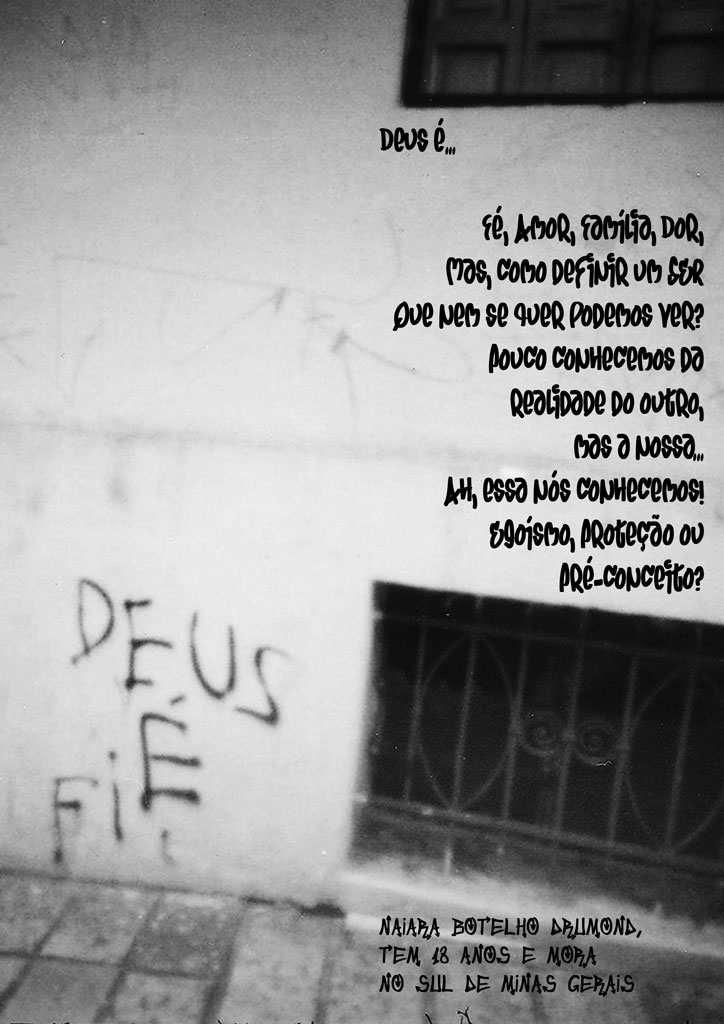 Deus é...
Fé, Amor, Família, Dor,
Mas, como definir um ser
Que nem se quer podemos ver?
Pouco conhecemos da
realidade do outro,
mas a nossa...
Ah, essa nós conhecemos!
Egoísmo, Proteção ou
Pré-conceito?
DEUS
É
FIÉ
NAIARA BOTELHO DRUMOND,
TEM 18 ANOS E MORA
NO SUL DE MINAS GERAIS